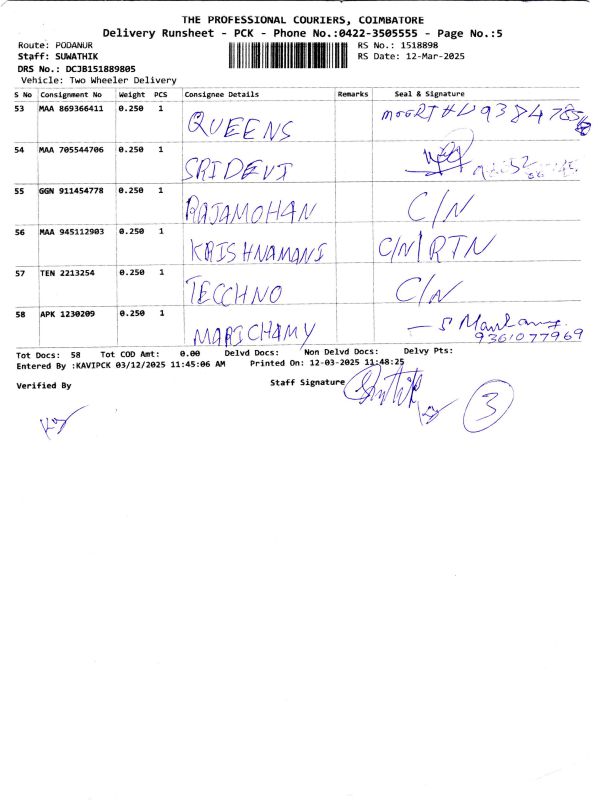 THE PROFESSIONAL COURIERS, COIMBATORE
Delivery Runsheet - PCK - Phone No.:0422-3505555 - Page No.:5
Route: PODANUR RS No.: 1518898
Staff: SUWATHIK RS Date: 12-Mar-2025
DRS No.: DCJB151889805
Vehicle: Two Wheeler Delivery
S No Consignment No Weight PCS Consignee Details Remarks Seal & Signature
53 MAA 869366411 0.250 1 QUEENS
54 MAA 705544706 0.250 1 SRIDEVI
55 GGN 911454778 0.250 1 RAJAMOHAN C/N
56 MAA 945112903 0.250 1 KRISHNAMANI C/N/RTN
57 TEN 2213254 0.250 1 TECCHNO C/N
58 APK 1230209 0.250 1 MARICHAMY
9361077969
Tot Docs: 58 Tot COD Amt: 0.00 Delvd Docs: Non Delvd Docs: Delvy Pts:
Entered By :KAVIPCK 03/12/2025 11:45:06 AM Printed On: 12-03-2025 11:48:25
Verified By Staff Signature
3